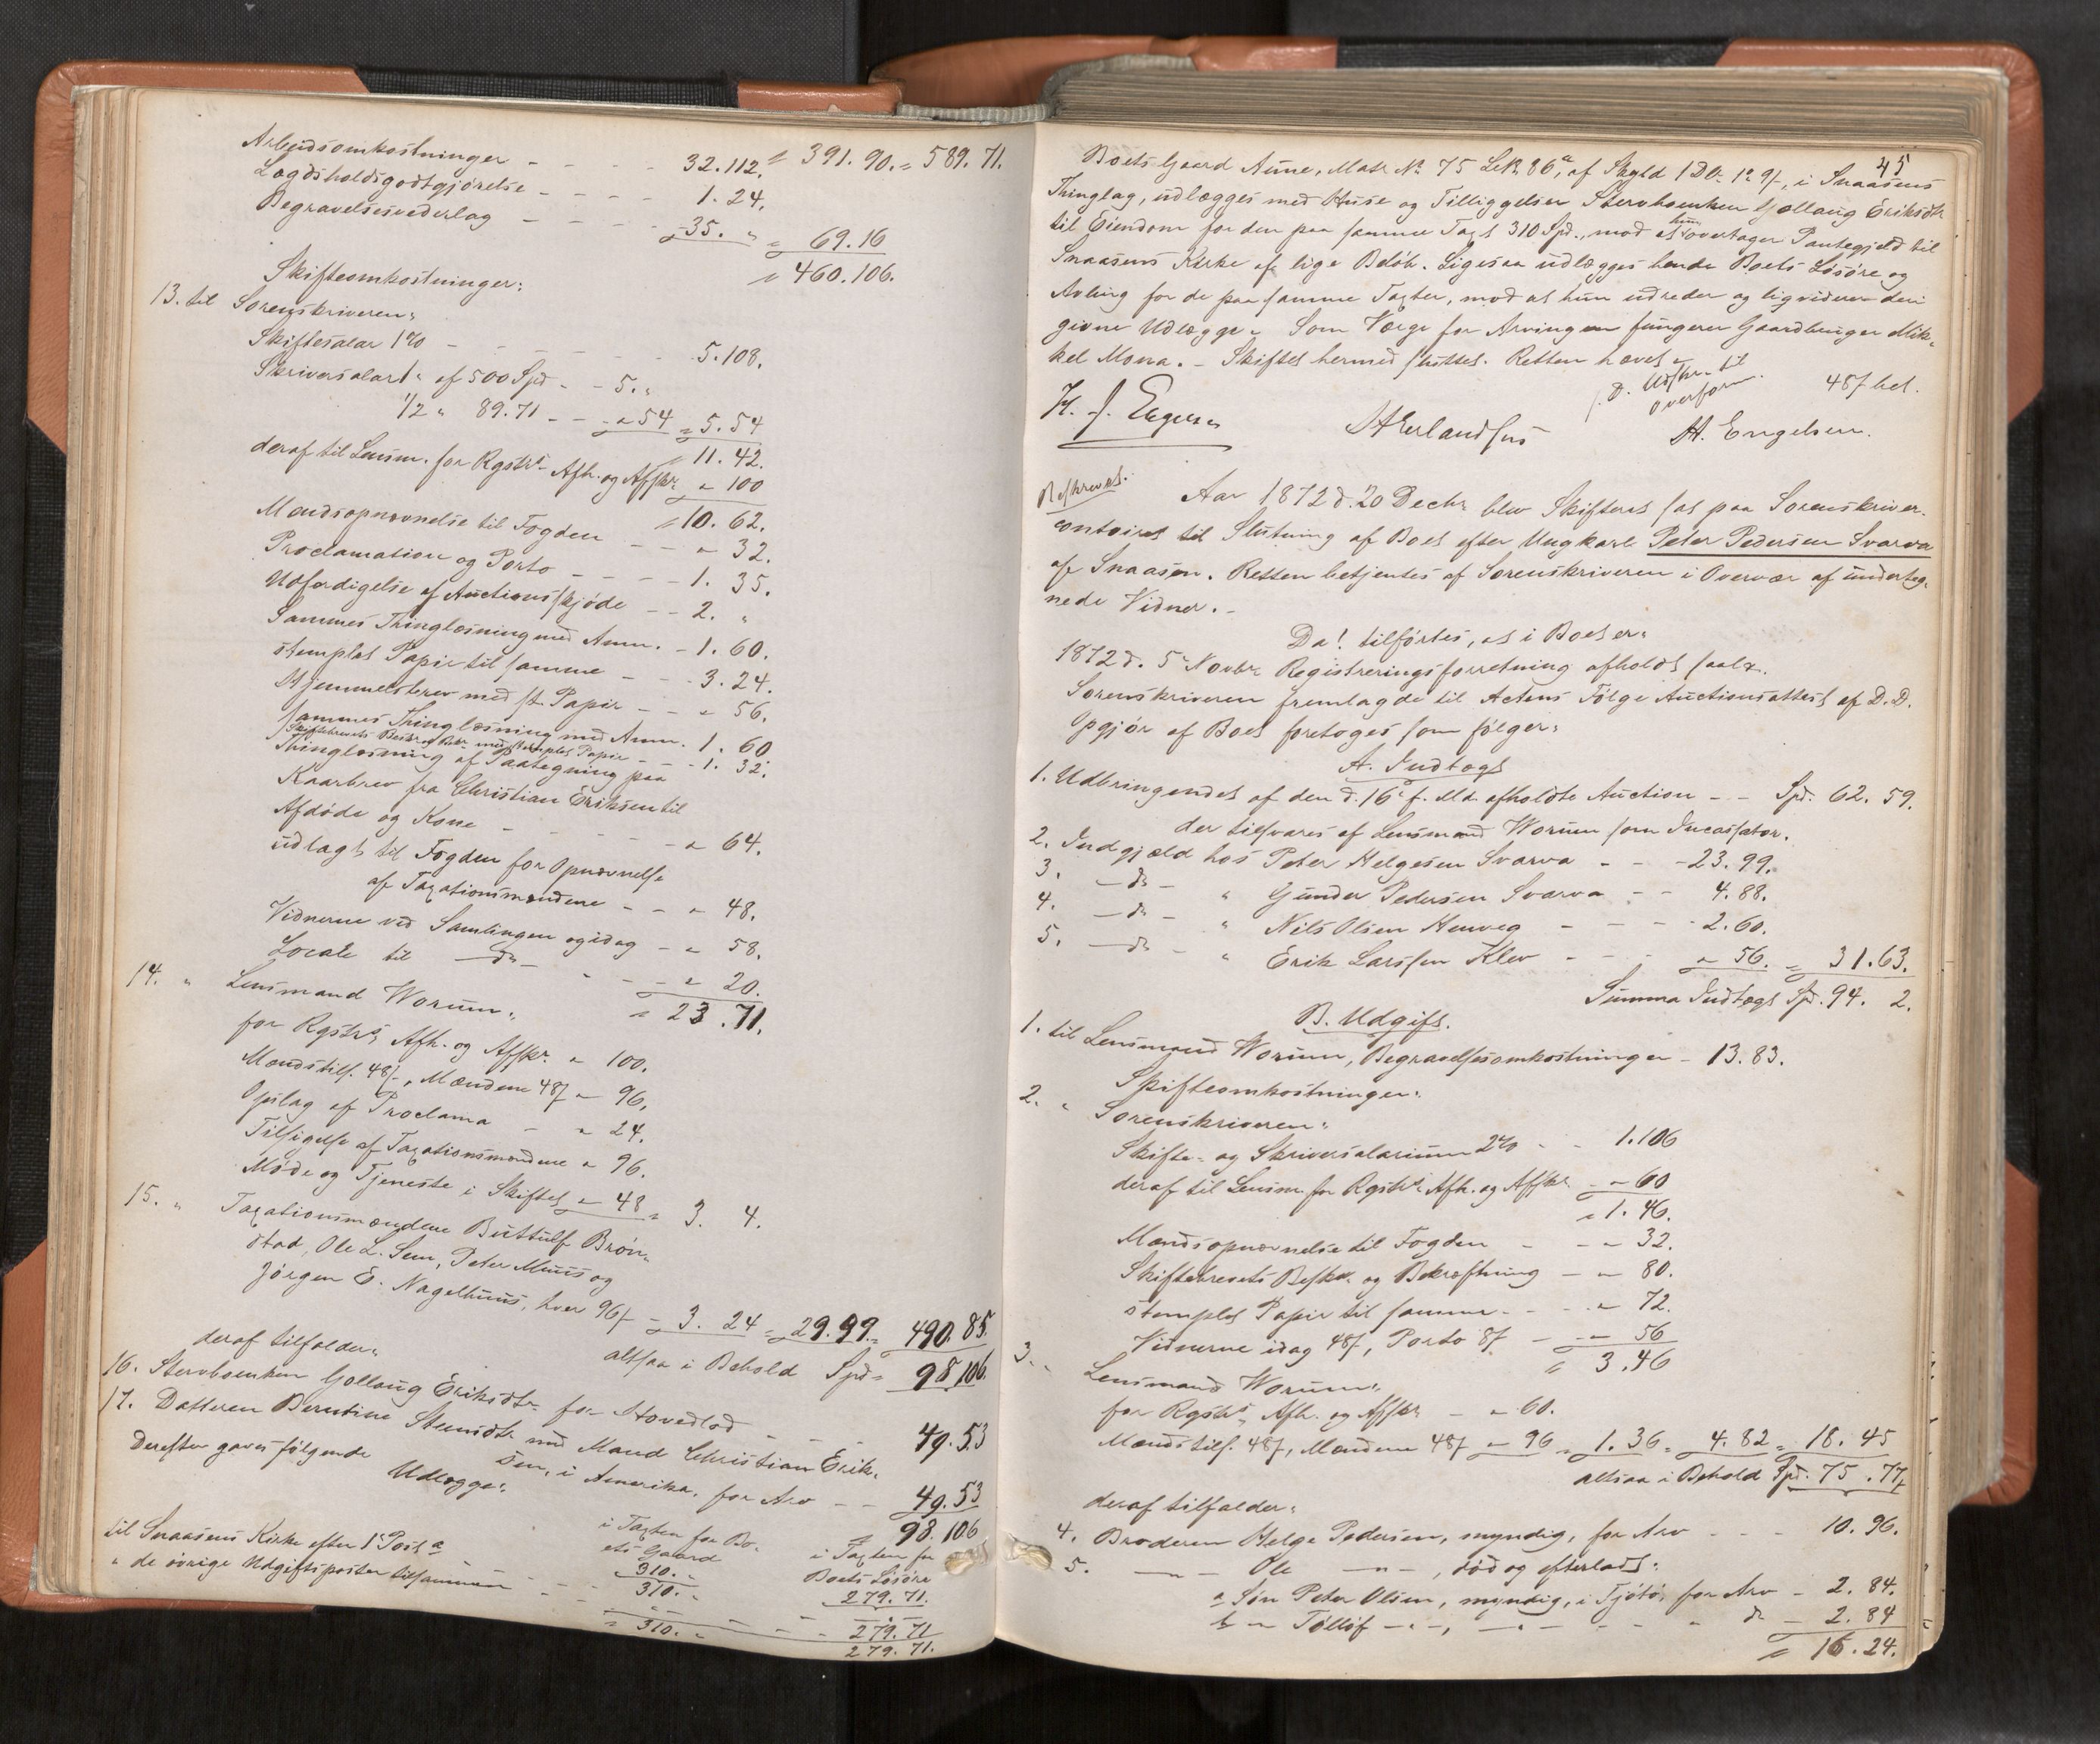 Arbeidsomkostninger - - - - 32.112. " 391. 90. = 589. 71.
Lægdsholdsgodtgjørelse - - - - 1. 24.
Begravelsesvederlag - - - - 35. " = 69. 16
" 460. 106.
Skifteomkostninger:
13. til Sorenskriveren:
Skiftesalar 1% - - - - 5. 108.
Skriversalar 1 " af 500 Spd - - 5. "
1/2 " 89. 71 - - " 54 = 5. 54
" 11. 42.
deraf til Lensm. for Rgstr. Afh. og Afskr. " 100
" 10. 62.
Mandsopnævnelse til Fogden - - " 32.
Proclamation og Porto - - - 1. 35.
Udfærdigelse af Auctionsskjøde - - 2. "
Sammes Thinglæsning med Anm. - 1. 60.
stemplet Papir til samme - - - 3. 24.
Hjemmelsbrev med st. Papir - - " 56.
sammes Thinglæsning med Anm. 1. 60
Skiftebrevets Beskr. og Bekr. med stemplet Papir - - - 1. 32.
Thinglæsning af Paategning paa
Kaarbrev fra Christian Eriksen til
Afdøde og Kone - - - - " 64.
udlagt til Fogden for Opnævnelse
af Taxationsmændene - - " 48.
Vidnerne ved Samlingen og idag - " 58.
Locale til - do - " - - " 20.
" 23. 71.
14. " Lensmand Worum:
for Rgstr. Afh. og Afskr. " 100.
Mændstils. 48 f, Mændene 48 f " 96.
Opslag af Proclama - " 24.
Tilsigelse af Taxationsmændene " 96.
Møde og Tjeneste i Skiftet " 48 = 3. 4.
15. " Taxationsmændene Buttulf Brøn-
stad, Ole L. Sem, Peter Muus og
Jørgen E. Nagelhuus, hver 96 f - 3. 24 = 29. 99. = 490. 85.
altsaa i Behold Spd = 98. 106.
deraf tilfalder:
16. Stervboenken Gollaug Eriksdtr. for Hovedlod - - - 49. 53
17. Datteren Berntine Steensdtr. med Mand Christian Erik-
sen, i Amerika, for Arv - - 49. 53
" 98. 106
Derefter gaves følgende
Udlægge:
i Taxten for Bo-
ets Gaard
i Taxten for
Boets Løsøre
310. "
279. 71.
til Snaasens Kirke efter 1s Post a - - 310. "
" de øvrige Udgiftsposter tilsammen - - - - - - 279. 71
" 310. " 279. 71.
45
Boets Gaard Aune, Matr. No. 75 Løb. 86a, af Skyld 1 Dlr. 1 o. 9 f, i Snaasens
Thinglag, udlægges med Huse og Tilliggelser Stervboenken Gollaug Eriksdtr
til Eiendom for den paa samme Taxt 310 Spd., mod at hun overtager Pantegjæld til
Snaasens Kirke af lige Beløb. Ligesaa udlægges hende Boets Løsøre og
Avling for de paa samme Taxter, mod at hun udreder og ligviderer deri
givne Udlægge. Som Værge for Arvingen fungerer Gaardbruger Mik-
kel Mona. - Skiftet hermed sluttet. Retten hævet.
D. Udskr. til
Overform.
48 f bet.
H. J. Erlandsens
H. Engelsen.
Beskrevet.
Aar 1872 d. 20 Decbr blev Skifteret sat paa Sorenskriver-
contoiret til Slutning af Boet efter Ungkarl Peter Pedersen Svarva
af Snaasen. Retten betjentes af Sorenskriveren i Overvær af underteg-
nede Vidner. -
Da! tilførtes, at i Boet er:
1872 d. 5 Novbr Registreringsforretning afholdt saal.
Sorenskriveren fremlagde til Actens Følge Auctionsattest af D.D.
Opgjør af Boet foretoges som følger:
A. Indtægt
1. Udbringendet af den d. 16 f. Md. afholdte Auction - - Spd. 62. 59.
der tilsvares af Lensmand Worum som Incassator.
2. Indgjæld hos Peter Helgesen Svarva - - - 23. 99.
3. - do - " Gunder Pedersen Svarva - - 4. 88.
4. - do - " Nils Olsen Hauveg - - - - 2. 60.
5. - do - " Erik Larssen Klev - - - " 56. = 31. 63.
Summa Indtægt Spd. 94. 2.
B. Udgift.
1. til Lensmand Worum, Begravelsesomkostninger - 13. 83.
Skifteomkostninger:
2. " Sorenskriveren:
Skifte- og Skriversalarium 2% - - 1. 106
deraf til Lensm. for Rgstr. Afh. og Afskr. - " 60
" 1. 46.
Mandsopnævnelse til Fogden - - " 32.
Skiftebrevets Beskr. og Bekræftning - " 80.
stemplet Papir til samme - - " 72.
Vidnerne idag 48 f, Porto 8 f - - " 56
" 3. 46
3. " Lensmand Worum:
for Rgstr. Afh. og Afskr. - " 60.
Mændstils. 48 f, Mændene 48 f " 96 = 1. 36 = 4. 82 = 18. 45
altsaa i Behold Spd. 75. 77.
deraf tilfalder:
4. Broderen Helge Pedersen, myndig, for Arv - - - 10. 96.
5. - " - Ole - " -, død og efterladt:
a Søn Peter Olsen, myndig, i Tjøtø, for Arv - 2. 84.
b " Tollof - " -, - " - - - " do - 2. 84
" 16. 24.